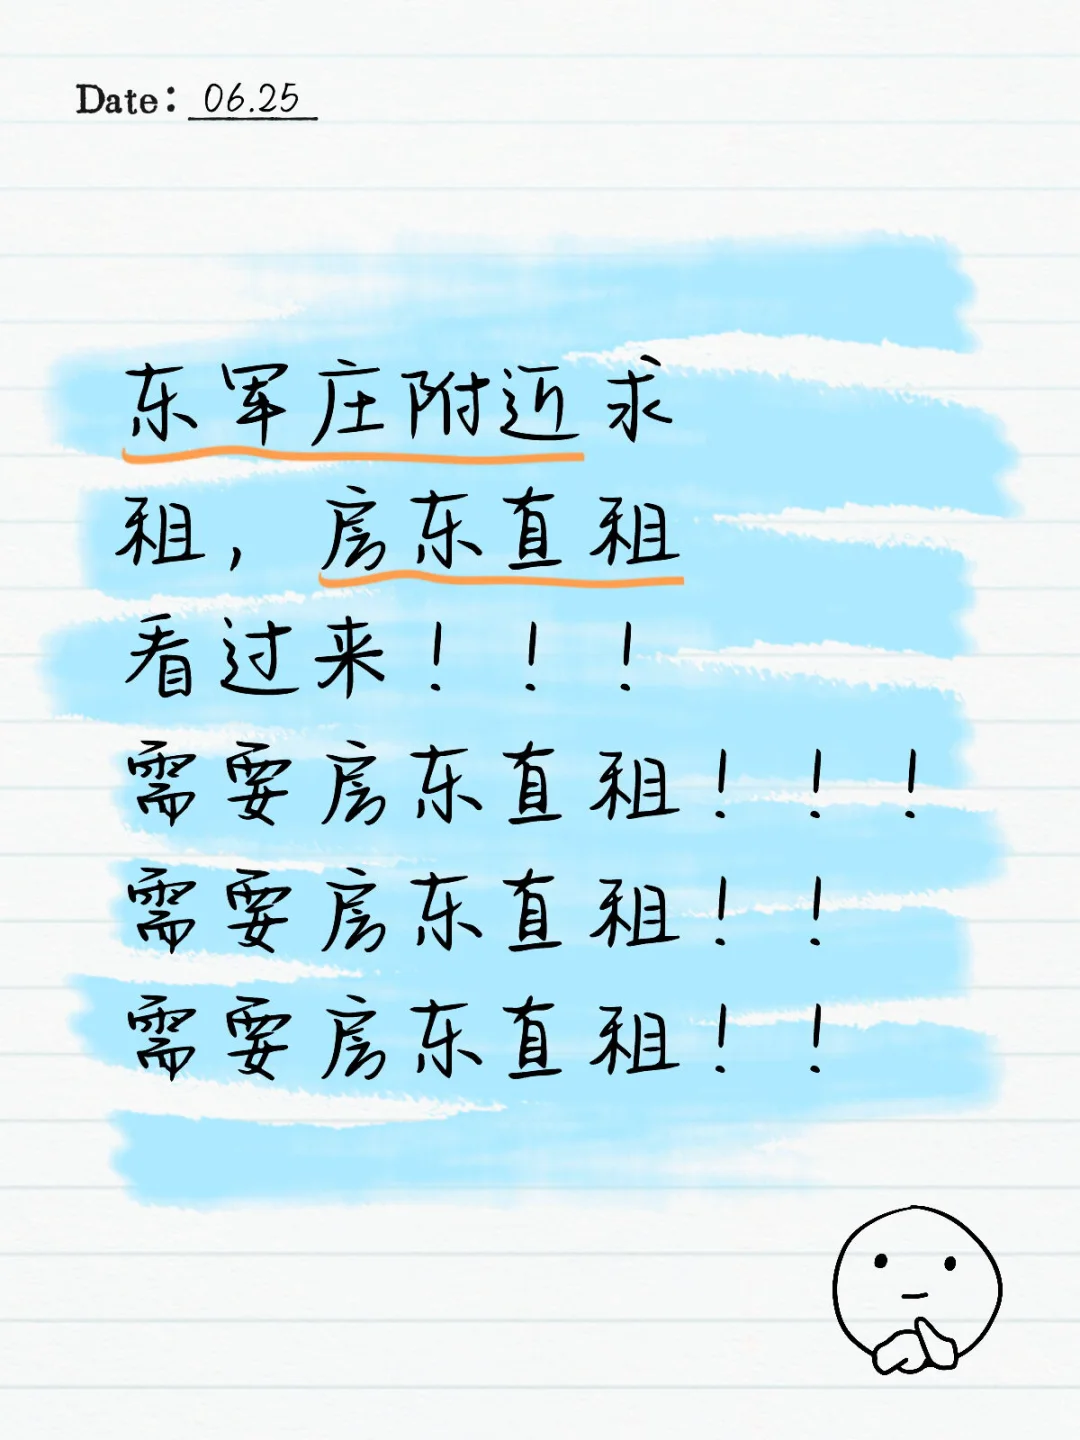 Date: 06.25
东军庄附近求
租，房东直租
看过来！！！
需要房东直租！！！
需要房东直租！！
需要房东直租！！